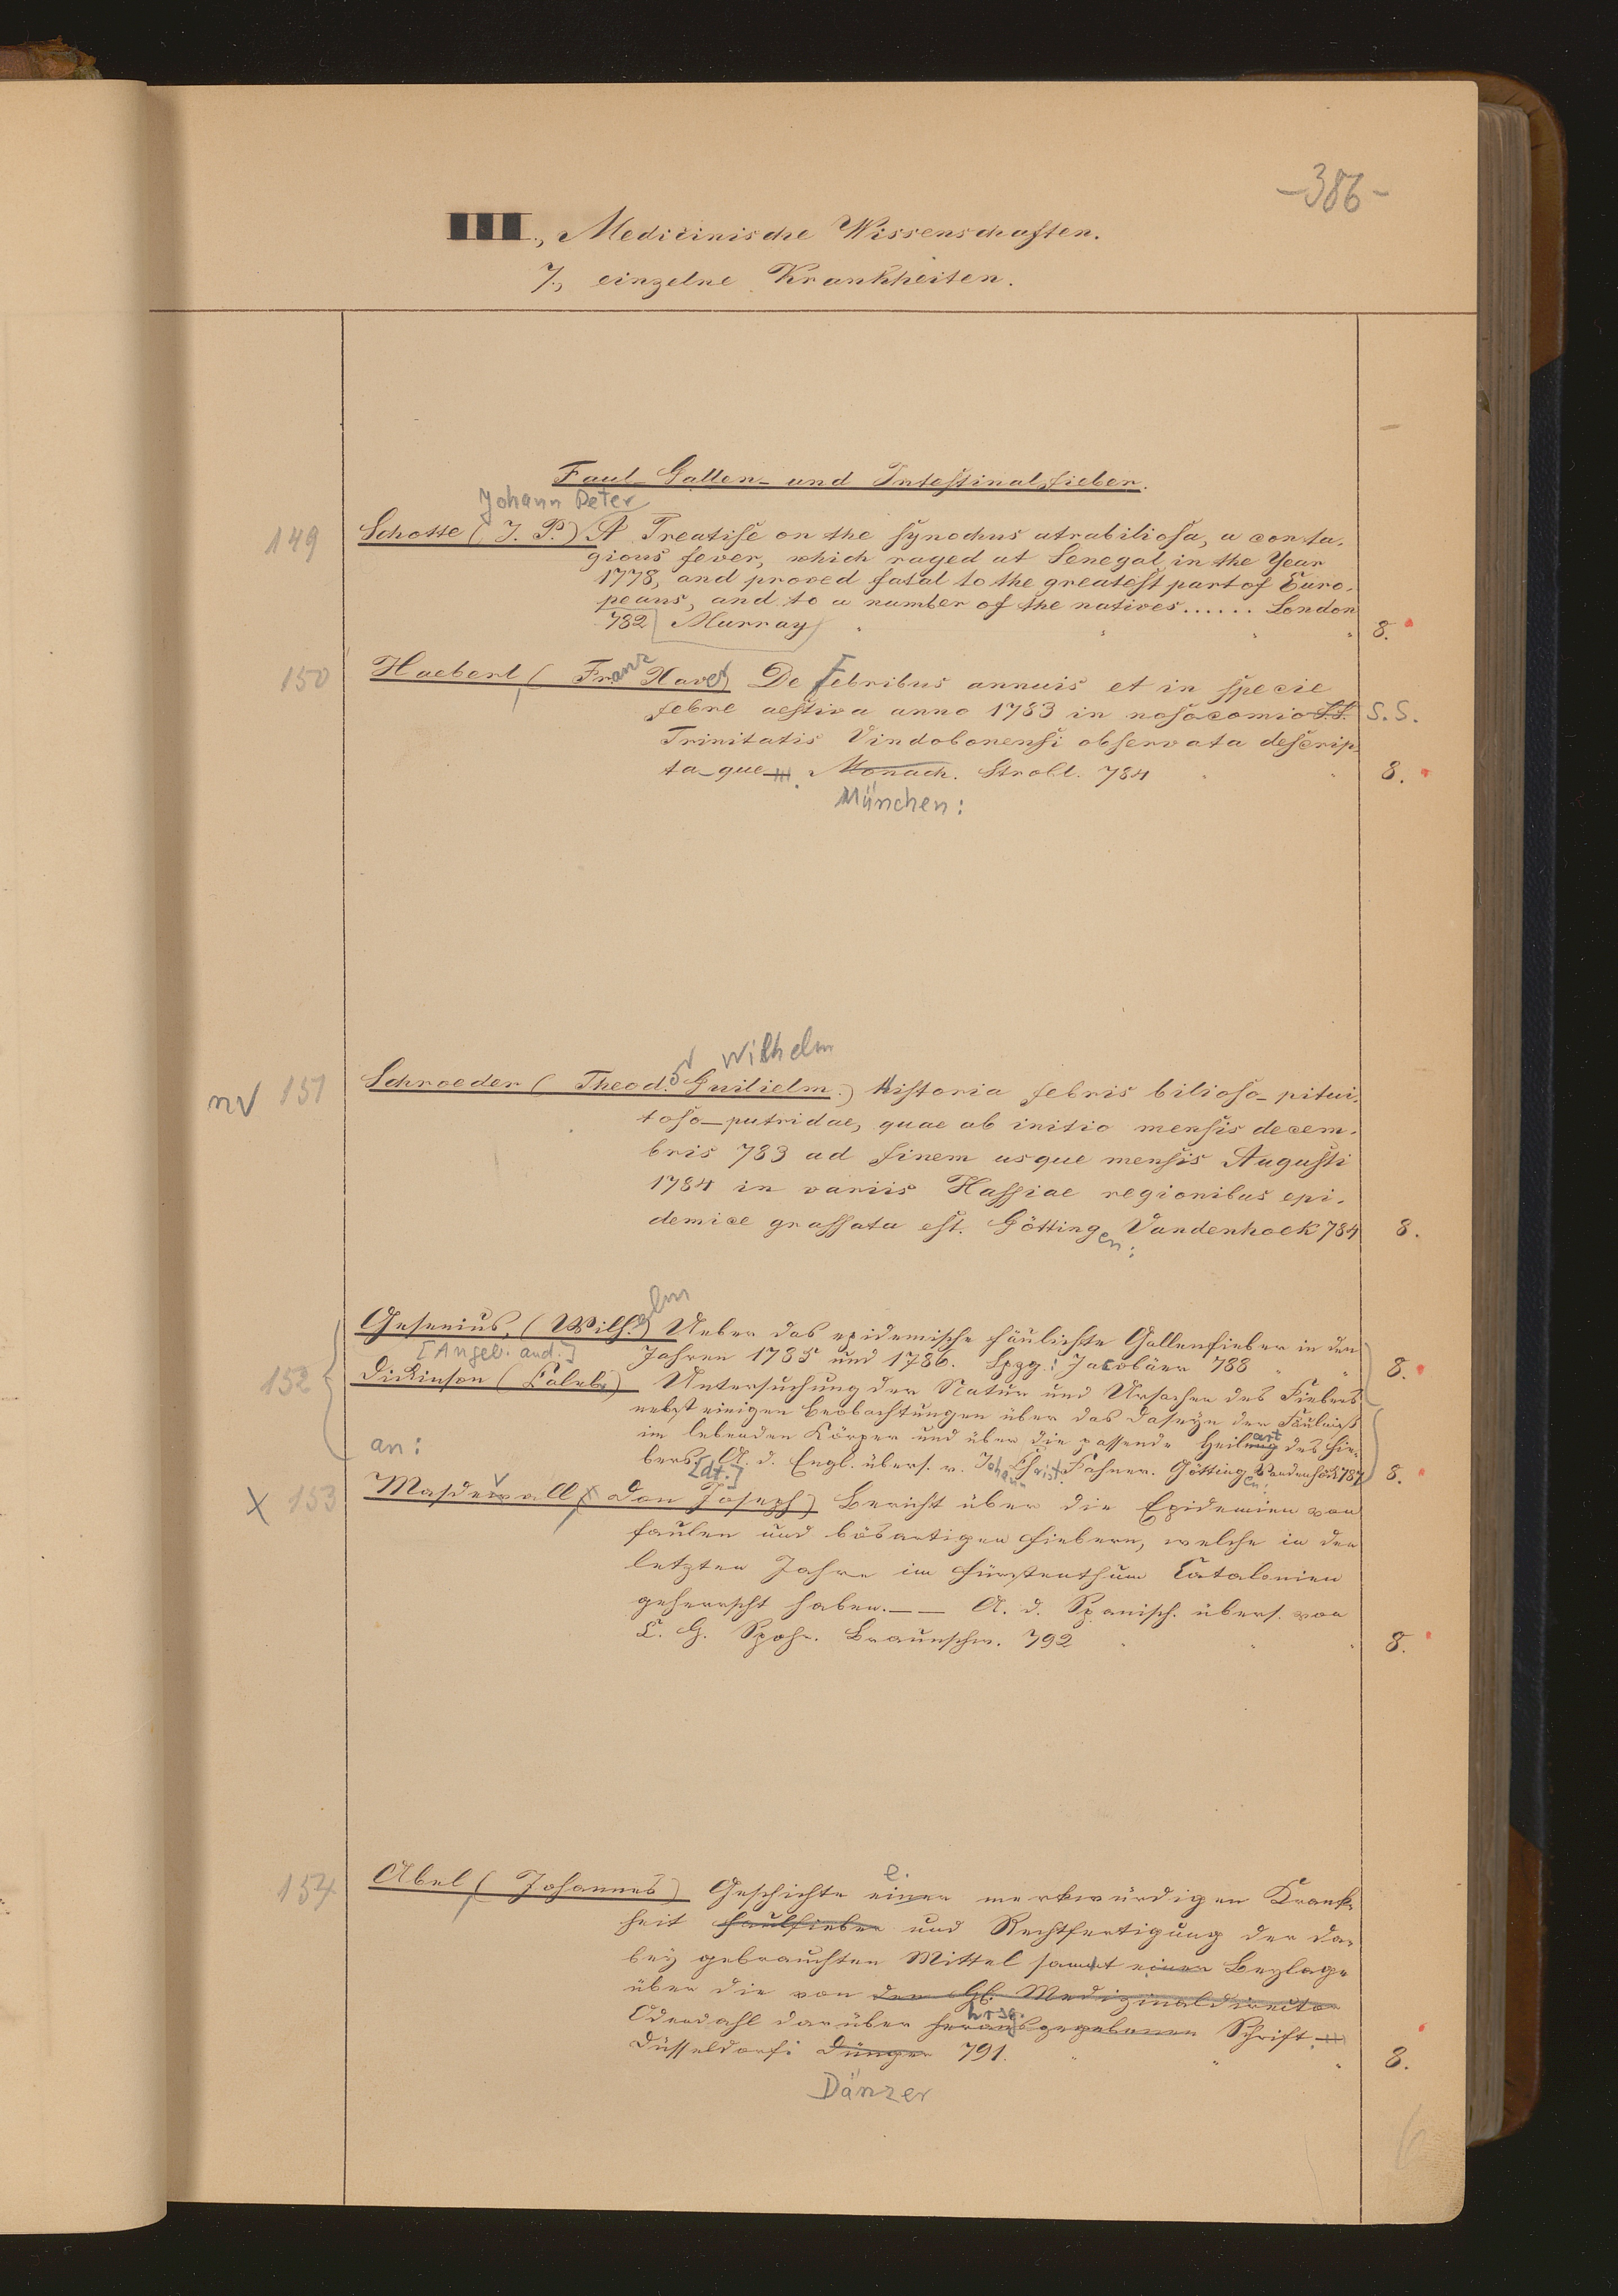 -386-
III., Medicinische Wissenschaften.
7., einzelne Krankheiten.
Faul- Gallen- und Intestinalfieber.
Johann Peter
149 Schotte (J. P.) A Treatise on the synochus atrabiliosa, a conta-
gious fever, which raged at Senegal in the Year
1778, and proved fatal to the greatest part of Euro-
peans, and to a number of the natives...... London
782 Murray 8.
150 Haeberl (Franz Xaver) De Febribus annuis et in specie
febre aestiva anno 1783 in nosocomio S.S. S.S.
Trinitatis Vindobonensi observata descrip-
ta-que. Monach. Strobl. 784 8.
München:
or Wilhelm
nv 151 Schroeder (Theod. Guilielm.) Historia febris bilioso-pitui-
toso-putridae, quae ab initio mensis decem-
bris 783 ad finem usque mensis Augusti
1784 in variis Hassiae regionibus epi-
demice grassata est. Göttingen: Vandenhoek 784 8.
elm
Gesenius, (Wilh.) Ueber das epidemische fäulichte Gallenfieber in den
[Angeb. and.] Jahren 1785 und 1786. Lpzg: Jacobäer 788 8.
152 Dickinson (Caleb) Untersuchung der Natur und Ursachen des Fiebers
nebst einigen Beobachtungen über das Daseyn der Fäulniß
im lebenden Körper und über die passende Heilung art des Fie-
an: bers. A. d. Engl. übers. v. Johann Christ. Fahner. Göttingen: Vandenhök 787 8.
[dt.]
X 153 Masdevall, Don Joseph) Bericht über die Epidemien von
faulen und bösartigen Fiebern, welche in den
letzten Jahren im Fürstenthum Catalonien
geherrscht haben.-- A. d. Spanisch. übers. von
C. G. Spohr. Braunschw. 792 8.
e.
154 Abel (Johannes) Geschichte einer merkwürdigen Krank-
heit Faulfieber und Rechtfertigung der da-
bey gebrauchten Mittel sammt einer Beylage
über die von dem Hl. Medizinaldirector
hrsg.
Odendahl darüber herausgegebenen Schrift.
Düsseldorf: Dänger 791. 8.
Dänzer
6